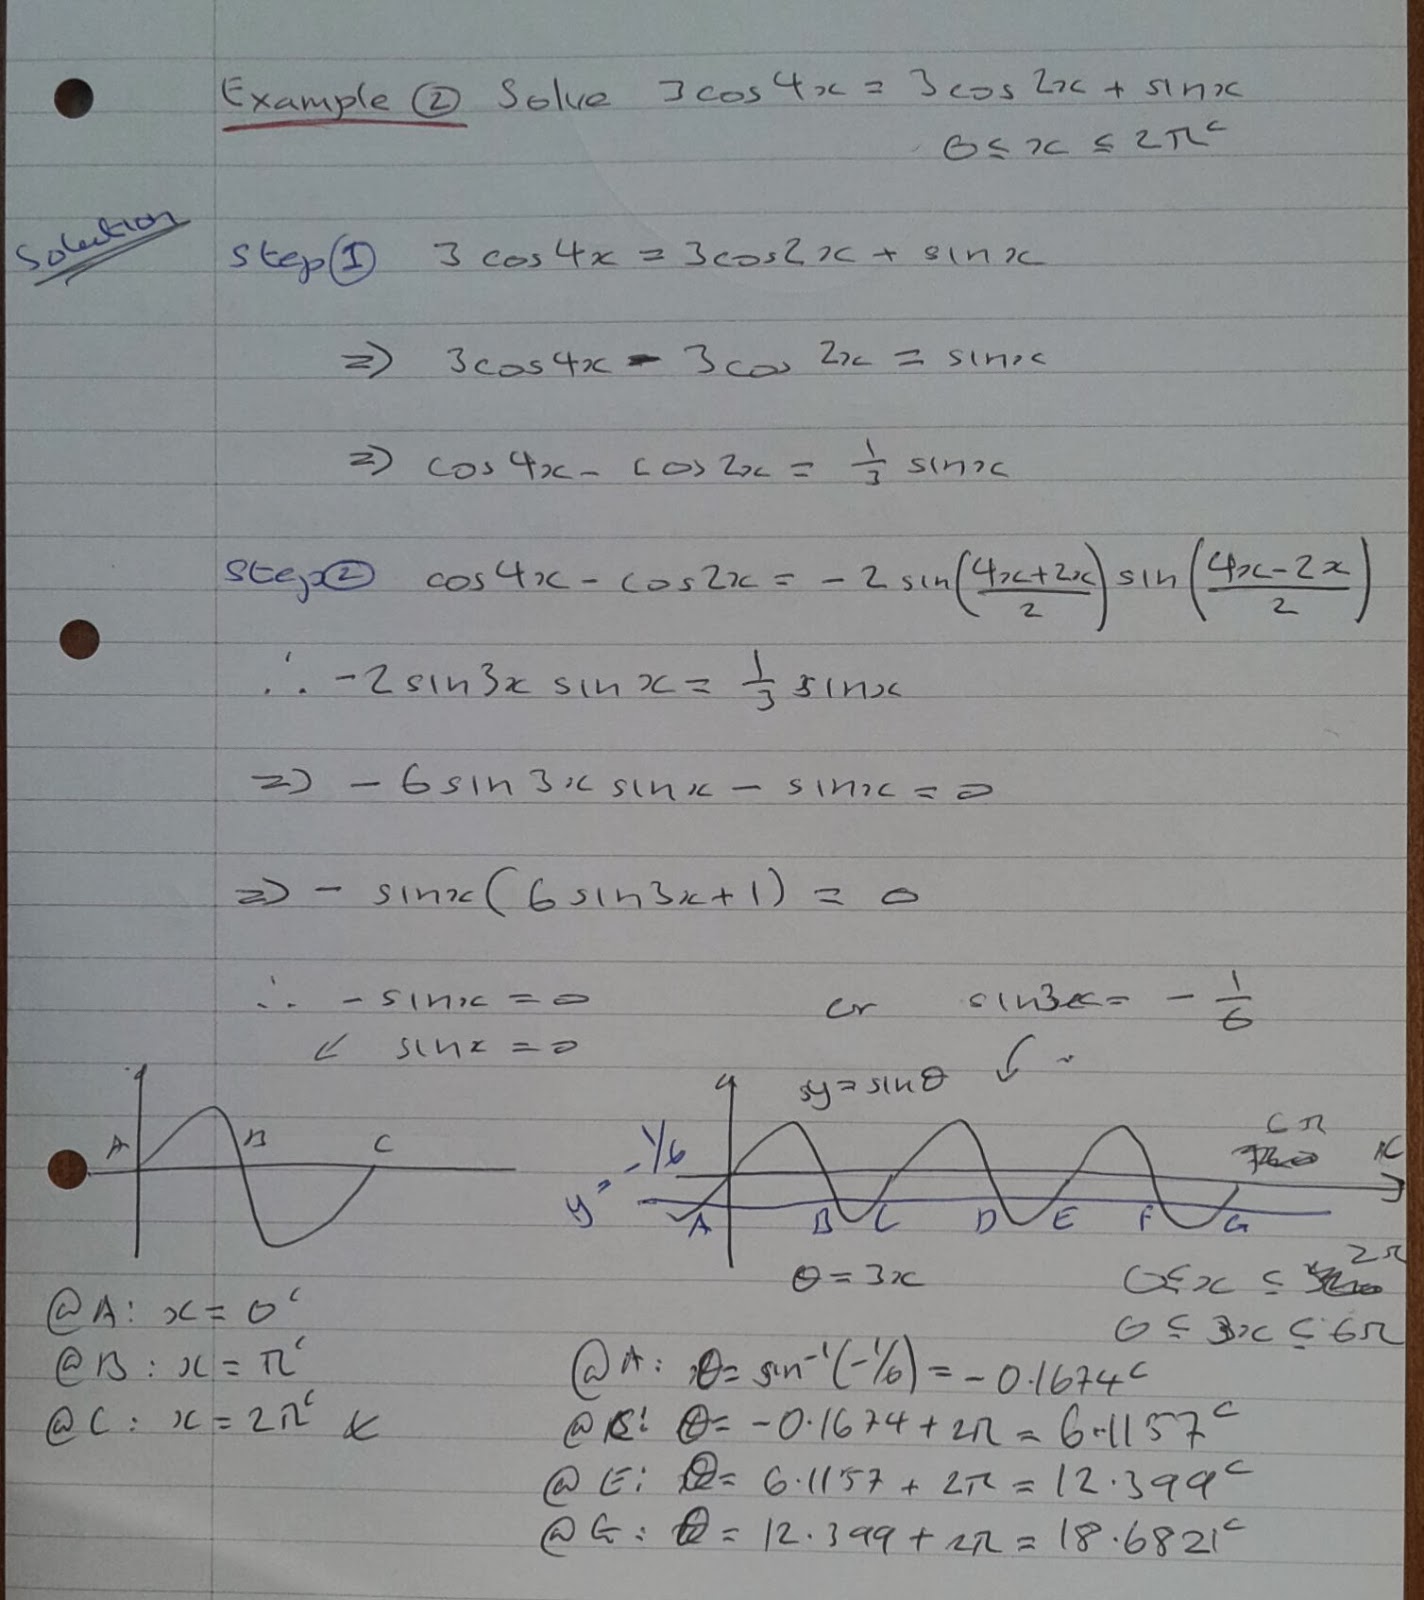 Example ② Solve 3cos4x = 3cos2x + sinx
0 ≤ x ≤ 2π^c
Solution
Step ① 3cos4x = 3cos2x + sinx
⇒ 3cos4x - 3cos2x = sinx
⇒ cos4x - cos2x = 1/3 sinx
Step ② cos4x - cos2x = -2 sin((4x+2x)/2) sin((4x-2x)/2)
∴ -2sin3x sinx = 1/3 sinx
⇒ -6sin3x sinx - sinx = 0
⇒ - sinx(6sin3x+1) = 0
∴ -sinx = 0 or sin3x = - 1/6
↙ sinx = 0
y=sinθ
A B C
6π x
y = -1/6
A B C D E F G
θ = 3x
0 ≤ x ≤ 2π
0 ≤ 3x ≤ 6π
@A: x = 0^c
@B: x = π^c
@C: x = 2π^c
@A: θ = sin⁻¹(-1/6) = -0.1674^c
@C: θ = -0.1674 + 2π = 6.1157^c
@E: θ = 6.1157 + 2π = 12.399^c
@G: θ = 12.399 + 2π = 18.6821^c